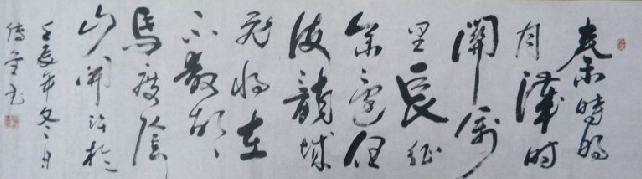 秦時明
月漢時
關萬
里長征
人未還但
使龍城
飛將在
不教胡
馬度陰
山
壬辰年冬月
書